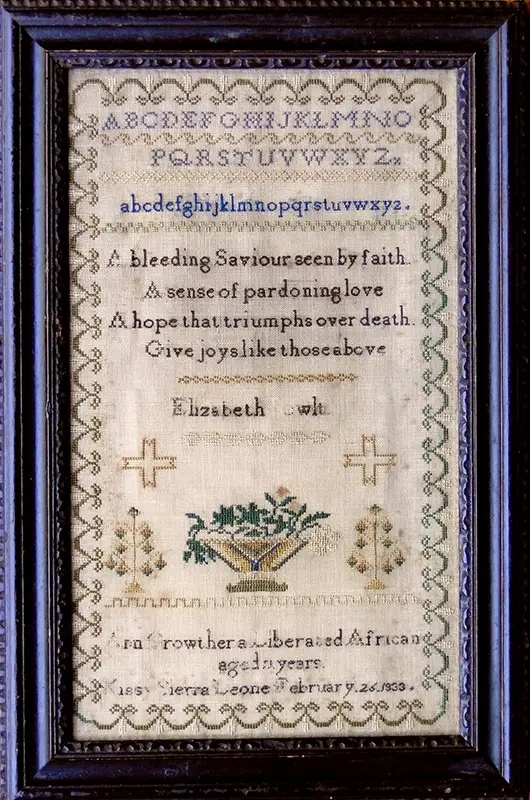 ABCDEFGHIJKLMNO
PQRSTUVWXYZ
abcdefghijklmnopqrstuvwxyz.
A bleeding Saviour seen by faith.
A sense of pardoning love
A hope that triumphs over death.
Give joys like those above
Elizabeth
Ann Crowther a Liberated African
aged years.
Kissy Sierra Leone February. 26. 1833.